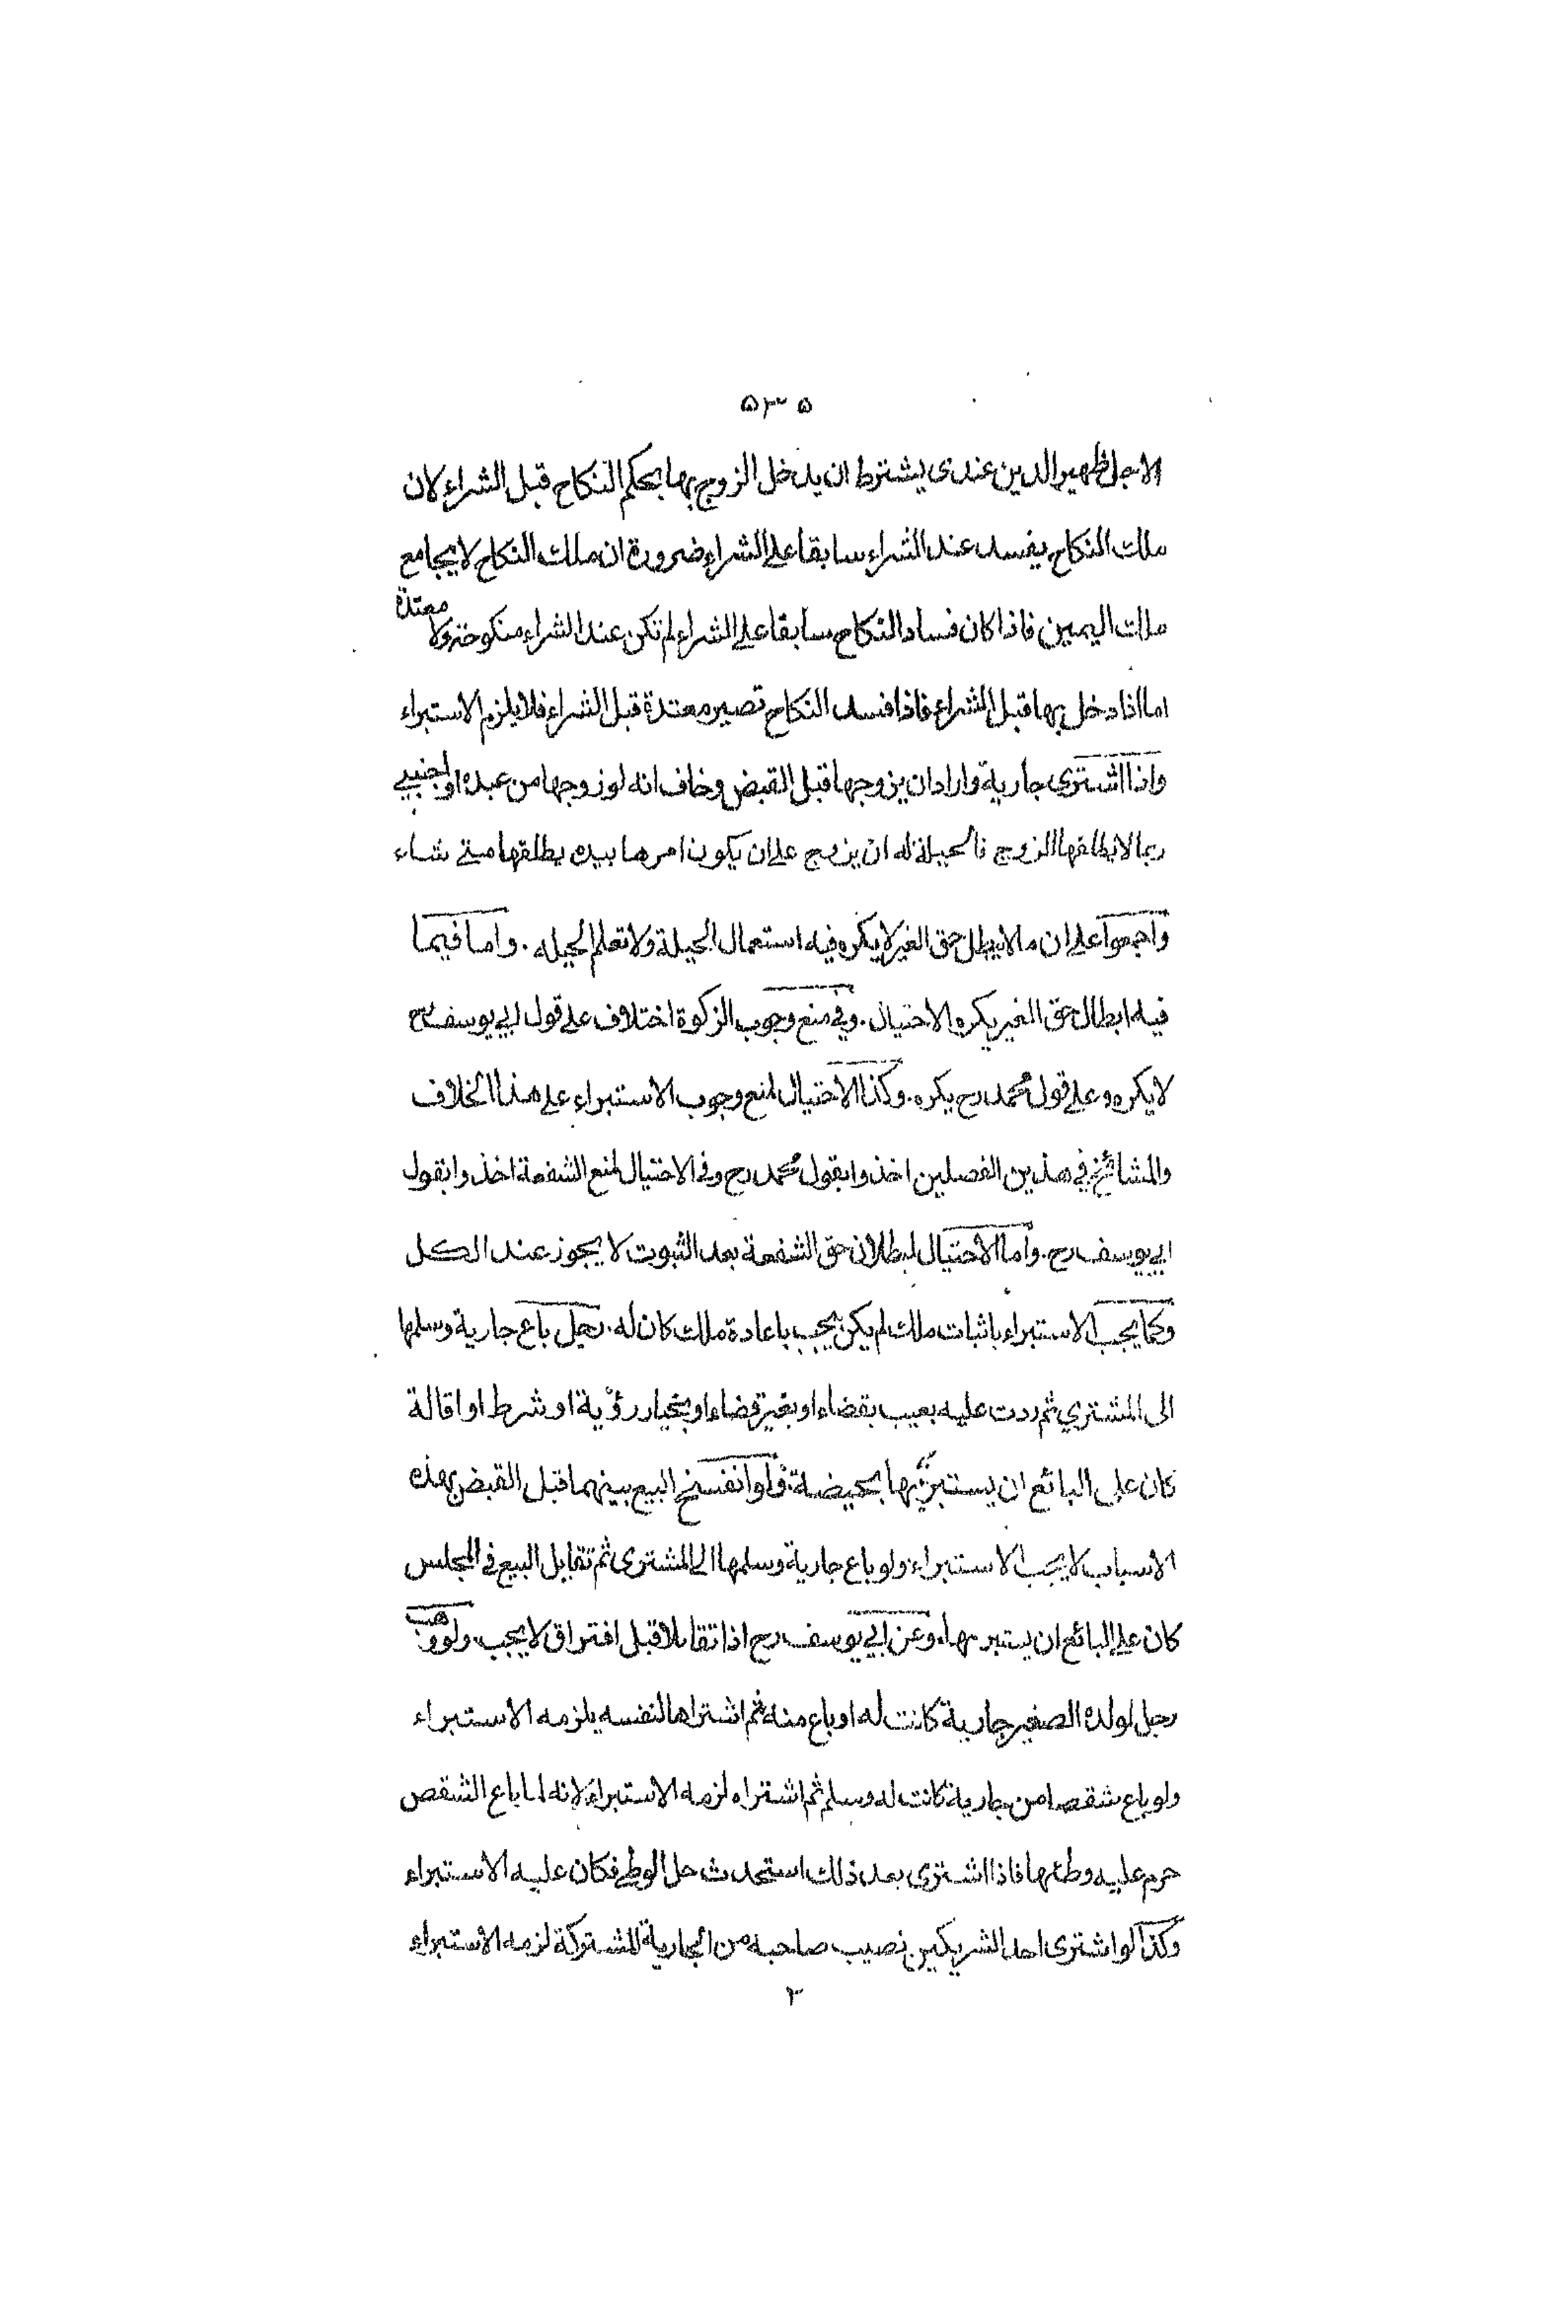 ۵۳۵
الاجل ظهير الدين عندى يشترط ان يدخل الزوج بها بحكم النكاح قبل الشراء لان
ملك النكاح يفسد عند الشراء سابقا على الشراء ضرورة ان ملك النكاح لا يجامع
ملك اليمين فاذا كان فساد النكاح سابقا على الشراء لم تكن عند الشراء منكوحة ولا معتدة
اما اذا دخل بها قبل الشراء فاذا فسد النكاح تصير معتدة قبل الشراء فلا يلزم الاستبراء
واذا اشترى جارية واراد ان يزوجها قبل القبض وخاف انه لو زوجها من عبده او اجنبي
ربما لا يطلقها الزوج فالحيلة له ان يزوج على ان يكون امرها بيده يطلقها متى شاء
واجمعوا على ان ما لا يبطل حق الغير لا يكره فيه استعمال الحيلة ولا تعلم الحيله . واما فيما
فيه ابطال حق الغير يكره الاحتيال . وفي منع وجوب الزكوة اختلاف على قول ابي يوسف رح
لا يكره وعلى قول محمد رح يكره . وكذا الاحتيال لمنع وجوب الاستبراء على هذا الخلاف
والمشائخ في هذين الفصلين اخذوا بقول محمد رح وفي الاحتيال لمنع الشفعة اخذوا بقول
ابي يوسف رح . واما الاحتيال لبطلان حق الشفعة بعد الثبوت لا يجوز عند الكل
وكما يجب الاستبراء باثبات ملك لم يكن يجب باعادة ملك كان له . رجل باع جارية وسلمها
الى المشتري ثم ردت عليه بعيب بقضاء او بغير قضاء او بخيار رؤية او شرط او اقالة
كان على البائع ان يستبرئها بحيضة . ولو انفسخ البيع بينهما قبل القبض بهذه
الاسباب لا يجب الاستبراء . ولو باع جارية وسلمها الى المشترى ثم تقايل البيع في المجلس
كان على البائع ان يستبرئها . وعن ابي يوسف رح اذا تقايلا قبل افتراق لا يجب . ولو وهب
رجل لولده الصغير جارية كانت له او باع منه ثم اشتراها لنفسه يلزمه الاستبراء
ولو باع شقصا من جارية كانت له وسلم ثم اشتراه لزمه الاستبراء لانه لما باع الشقص
حرم عليه وطئها فاذا اشترى بعد ذلك استحدث حل الوطي فكان عليه الاستبراء
وكذا لو اشترى احد الشريكين نصيب صاحبه من الجارية المشتركة لزمه الاستبراء